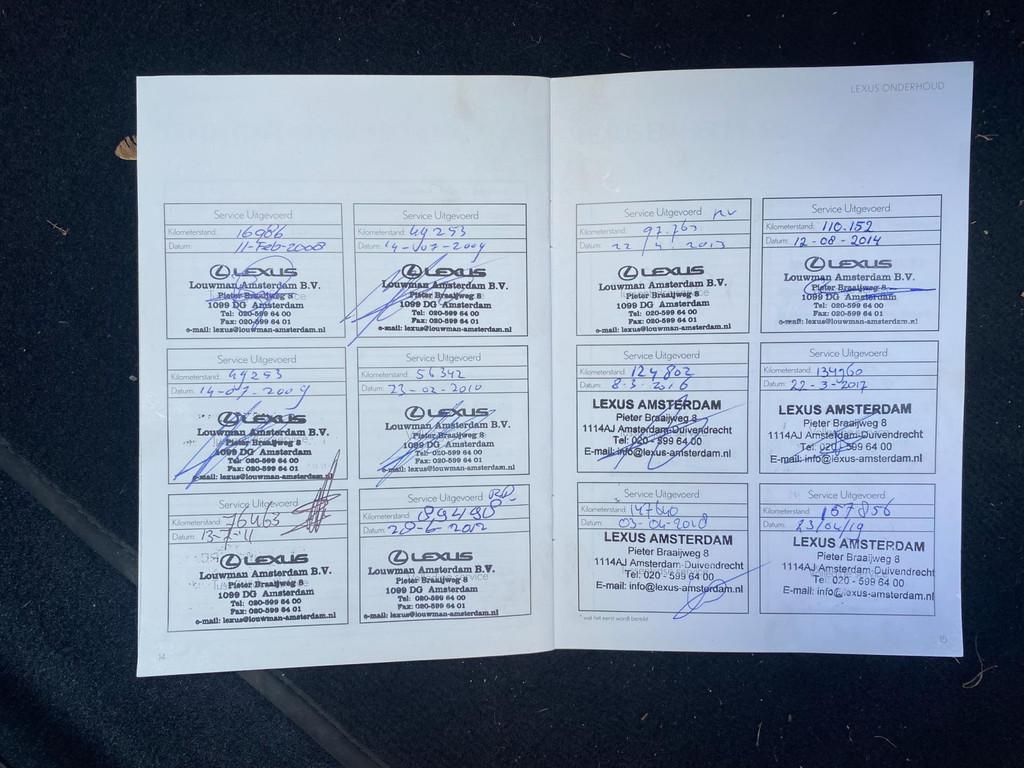 LEXUS ONDERHOUD
Service Uitgevoerd
Kilometerstand: 16986
Datum: 11-Feb-2008
LEXUS
Louwman Amsterdam B.V.
Pieter Braaijweg 8
1099 DG Amsterdam
Tel: 020-599 64 00
Fax: 020-599 64 01
e-mail: lexus@louwman-amsterdam.nl
Service Uitgevoerd
Kilometerstand: 49253
Datum: 14-07-2009
LEXUS
Louwman Amsterdam B.V.
Pieter Braaijweg 8
1099 DG Amsterdam
Tel: 020-599 64 00
Fax: 020-599 64 01
e-mail: lexus@louwman-amsterdam.nl
Service Uitgevoerd
Kilometerstand: 49253
Datum: 14-07-2009
LEXUS
Louwman Amsterdam B.V.
Pieter Braaijweg 8
1099 DG Amsterdam
Tel: 020-599 64 00
Fax: 020-599 64 01
e-mail: lexus@louwman-amsterdam.nl
Service Uitgevoerd
Kilometerstand: 56342
Datum: 23-02-2010
LEXUS
Louwman Amsterdam B.V.
Pieter Braaijweg 8
1099 DG Amsterdam
Tel: 020-599 64 00
Fax: 020-599 64 01
e-mail: lexus@louwman-amsterdam.nl
Service Uitgevoerd
Kilometerstand: 76463
Datum: 13-7-11
LEXUS
Louwman Amsterdam B.V.
Pieter Braaijweg 8
1099 DG Amsterdam
Tel: 020-599 64 00
Fax: 020-599 64 01
e-mail: lexus@louwman-amsterdam.nl
Service Uitgevoerd
Kilometerstand: 89498
Datum: 28-6-2012
LEXUS
Louwman Amsterdam B.V.
Pieter Braaijweg 8
1099 DG Amsterdam
Tel: 020-599 64 00
Fax: 020-599 64 01
e-mail: lexus@louwman-amsterdam.nl
14
Service Uitgevoerd
Kilometerstand: 97.763
Datum: 22/4/2013
LEXUS
Louwman Amsterdam B.V.
Pieter Braaijweg 8
1099 DG Amsterdam
Tel: 020-599 64 00
Fax: 020-599 64 01
e-mail: lexus@louwman-amsterdam.nl
Service Uitgevoerd
Kilometerstand: 110.152
Datum: 12-08-2014
LEXUS
Louwman Amsterdam B.V.
Pieter Braaijweg 8
1099 DG Amsterdam
Tel: 020-599 64 00
Fax: 020-599 64 01
e-mail: lexus@louwman-amsterdam.nl
Service Uitgevoerd
Kilometerstand: 124802
Datum: 8-3-2016
LEXUS AMSTERDAM
Pieter Braaijweg 8
1114AJ Amsterdam-Duivendrecht
Tel: 020 - 599 64 00
E-mail: info@lexus-amsterdam.nl
Service Uitgevoerd
Kilometerstand: 134760
Datum: 22-3-2017
LEXUS AMSTERDAM
Pieter Braaijweg 8
1114AJ Amsterdam-Duivendrecht
Tel: 020 - 599 64 00
E-mail: info@lexus-amsterdam.nl
Service Uitgevoerd
Kilometerstand: 147640
Datum: 03-04-2018
LEXUS AMSTERDAM
Pieter Braaijweg 8
1114AJ Amsterdam-Duivendrecht
Tel: 020 - 599 64 00
E-mail: info@lexus-amsterdam.nl
Service Uitgevoerd
Kilometerstand: 157856
Datum: 23/04/19
LEXUS AMSTERDAM
Pieter Braaijweg 8
1114AJ Amsterdam-Duivendrecht
Tel: 020 - 599 64 00
E-mail: info@lexus-amsterdam.nl
* wat het eerst wordt bereikt
15